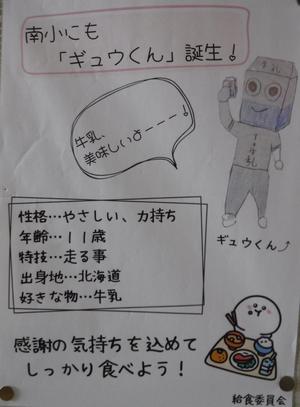 南小にも
「ギュウくん」誕生!
牛乳、
美味しいよーーー!
牛乳
性格…やさしい、力持ち
年齢…11歳
特技…走る事
出身地…北海道
好きな物…牛乳
ギュウくん
感謝の気持ちを込めて
しっかり食べよう!
給食委員会